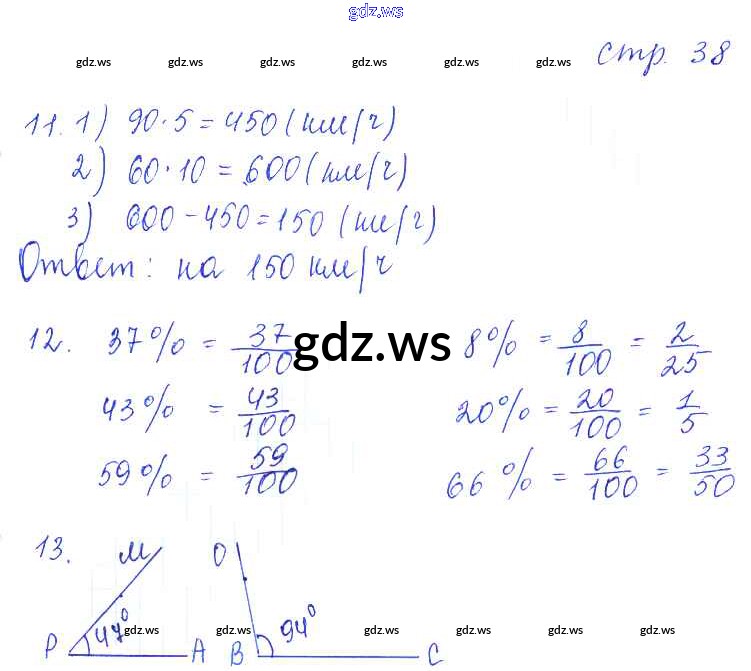 gdz.ws
стр. 38
gdz.ws gdz.ws gdz.ws gdz.ws gdz.ws gdz.ws
11. 1) 90·5=450(км/ч)
2) 60·10=600(км/ч)
3) 600-450=150(км/ч)
Ответ: на 150 км/ч
12. 37% = 37/100 gdz.ws 8% = 8/100 = 2/25
43% = 43/100 20% = 20/100 = 1/5
59% = 59/100 66% = 66/100 = 33/50
13. М О
47° 94°
gdz.ws gdz.ws gdz.ws gdz.ws gdz.ws gdz.ws
Р А В С